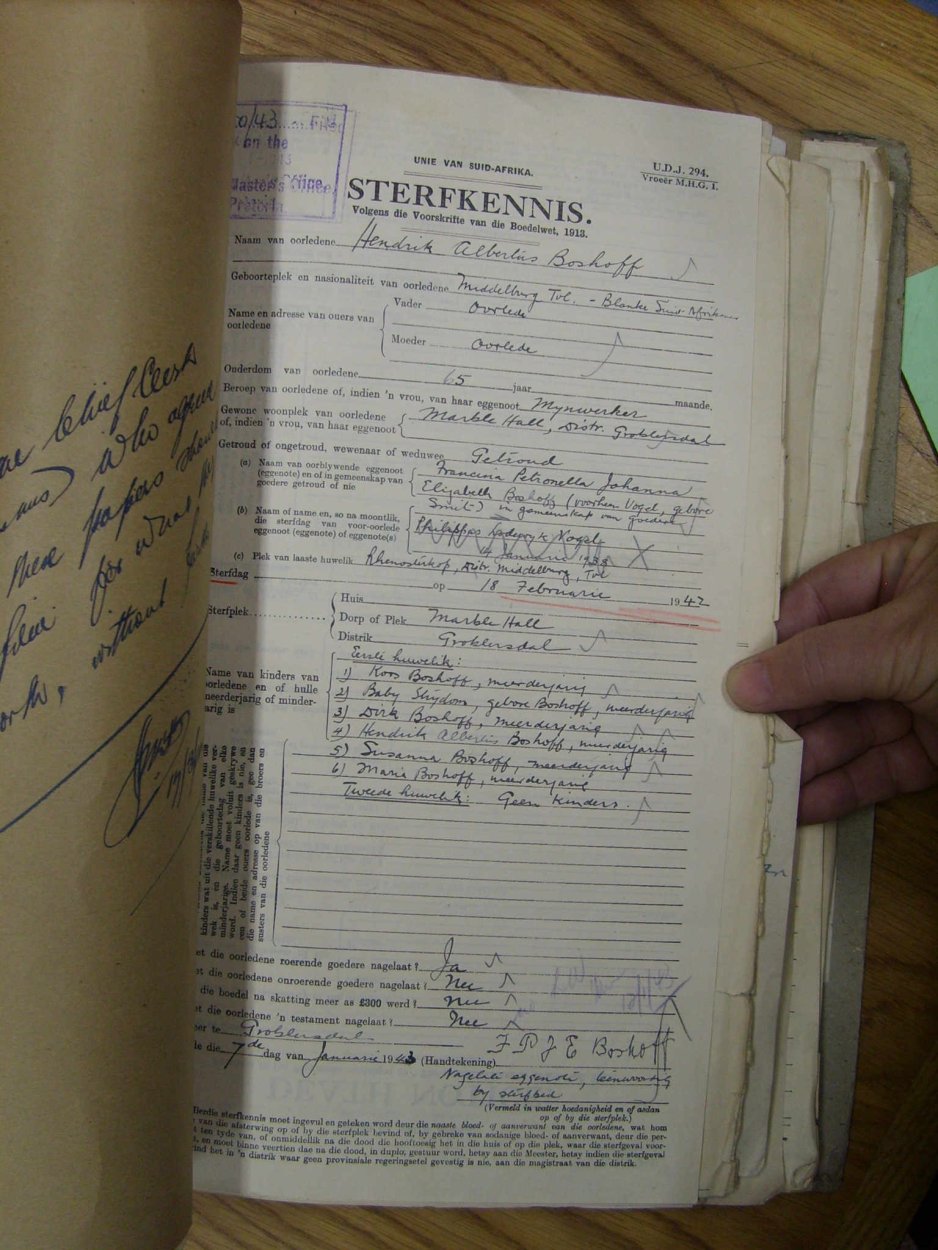 on the
Master's Office,
Pretoria
UNIE VAN SUID-AFRIKA.
U.D.J. 294.
Vroeër M.H.G. 1.
STERFKENNIS.
Volgens die Voorskrifte van die Boedelwet, 1913.
Naam van oorledene Hendrik Albertus Boshoff
Geboorteplek en nasionaliteit van oorledene Middelburg Tvl. - Blanke Suid-Afrikaner
Name en adresse van ouers van oorledene
Vader Oorlede
Moeder Oorlede
Ouderdom van oorledene 65 jaar maande.
Beroep van oorledene of, indien 'n vrou, van haar eggenoot Mynwerker
Gewone woonplek van oorledene of, indien 'n vrou, van haar eggenoot Marble Hall, Distr. Groblersdal
Getroud of ongetroud, wewenaar of weduwee Getroud
(a) Naam van oorblywende eggenoot (eggenote) en of in gemeenskap van goedere getroud of nie
Francina Petronella Johanna
Elizabeth Boshoff (voorheen Vogel, gebore
Smit) in gemeenskap van goedere
(b) Naam of name en, so na moontlik, die sterfdag van voor-oorlede eggenoot (eggenote) of eggenote(s)
Januarie 1938
(c) Plek van laaste huwelik Rhenosterkop, Distr. Middelburg, Tvl
Sterfdag op 18 Februarie 1942
Sterfplek
Huis
Dorp of Plek Marble Hall
Distrik Groblersdal
Name van kinders van oorledene en of hulle meerderjarig of minderjarig is
Eerste huwelik:
1) Koos Boshoff, meerderjarig
2) Baby Strydom, gebore Boshoff, meerderjarig
3) Dirk Boshoff, meerderjarig
4) Hendrik Albertus Boshoff, meerderjarig
5) Susanna Boshoff, meerderjarig
6) Maria Boshoff, meerderjarig
Tweede huwelik: Geen kinders.
kinders wat uit die verskillende huwelike verwek is, en die geboortedag van elke
minderjarige. Name moet voluit geskrywe
word. Indien daar geen kinders is nie, en
een of beide ouers oorlede is, gee dan
die name en adresse op van die broers en
susters van die oorledene
et die oorledene roerende goedere nagelaat? Ja
et die oorledene onroerende goedere nagelaat? Nee
die boedel na skatting meer as £300 werd? Nee
et die oorledene 'n testament nagelaat? Nee
er te Groblersdal
le die 7de dag van Januarie 1943 (Handtekening) F P J E Boshoff
Nagelate eggenote, teenwoordig
by sterfbed
(Vermeld in watter hoedanigheid en of asdan
op of by die sterfplek.)
Hierdie sterfkennis moet ingevul en geteken word deur die naaste bloed- of aanverwant van die oorledene, wat hom
van die afsterwing op of by die sterfplek bevind of, by gebreke van sodanige bloed- of aanverwant, deur die per-
ten tyde van, of onmiddellik na die dood die hooftoesig het in die huis of op die plek, waar die sterfgeval voor-
, en moet binne veertien dae na die dood, in duplo, gestuur word, hetsy aan die Meester, hetsy indien die sterfgeval
ind het in 'n distrik waar geen provinsiale regeringsetel gevestig is nie, aan die magistraat van die distrik.
chief clerk
who agree
these papers
for what
without